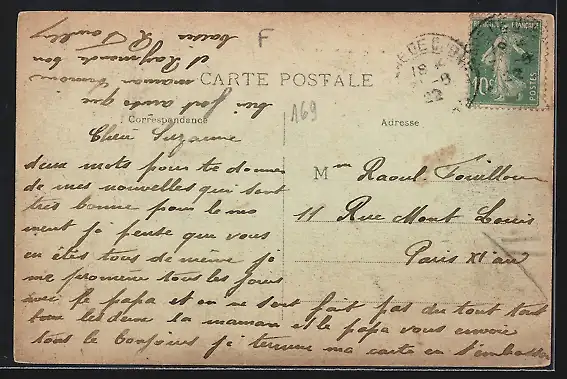 F
CARTE POSTALE
169
Correspondance
Adresse
RÉPUBLIQUE FRANÇAISE
10c
POSTES
18
22
Chère Suzanne
deux mots pour te donner
de mes nouvelles qui sont
très bonne pour le mo
ment je pense que vous
en êtes tous de même je
me promène tous les jours
avec le papa et on ne s'en fait pas du tout tout
tous les deux la maman et le papa vous envoie
tous le bonjour je termine ma carte en t'embrassant
bien fort ainsi que
maman
et Raymonde bon
baiser
Mme Raoul Fouillou
11 Rue Mont Louis
Paris XI arr